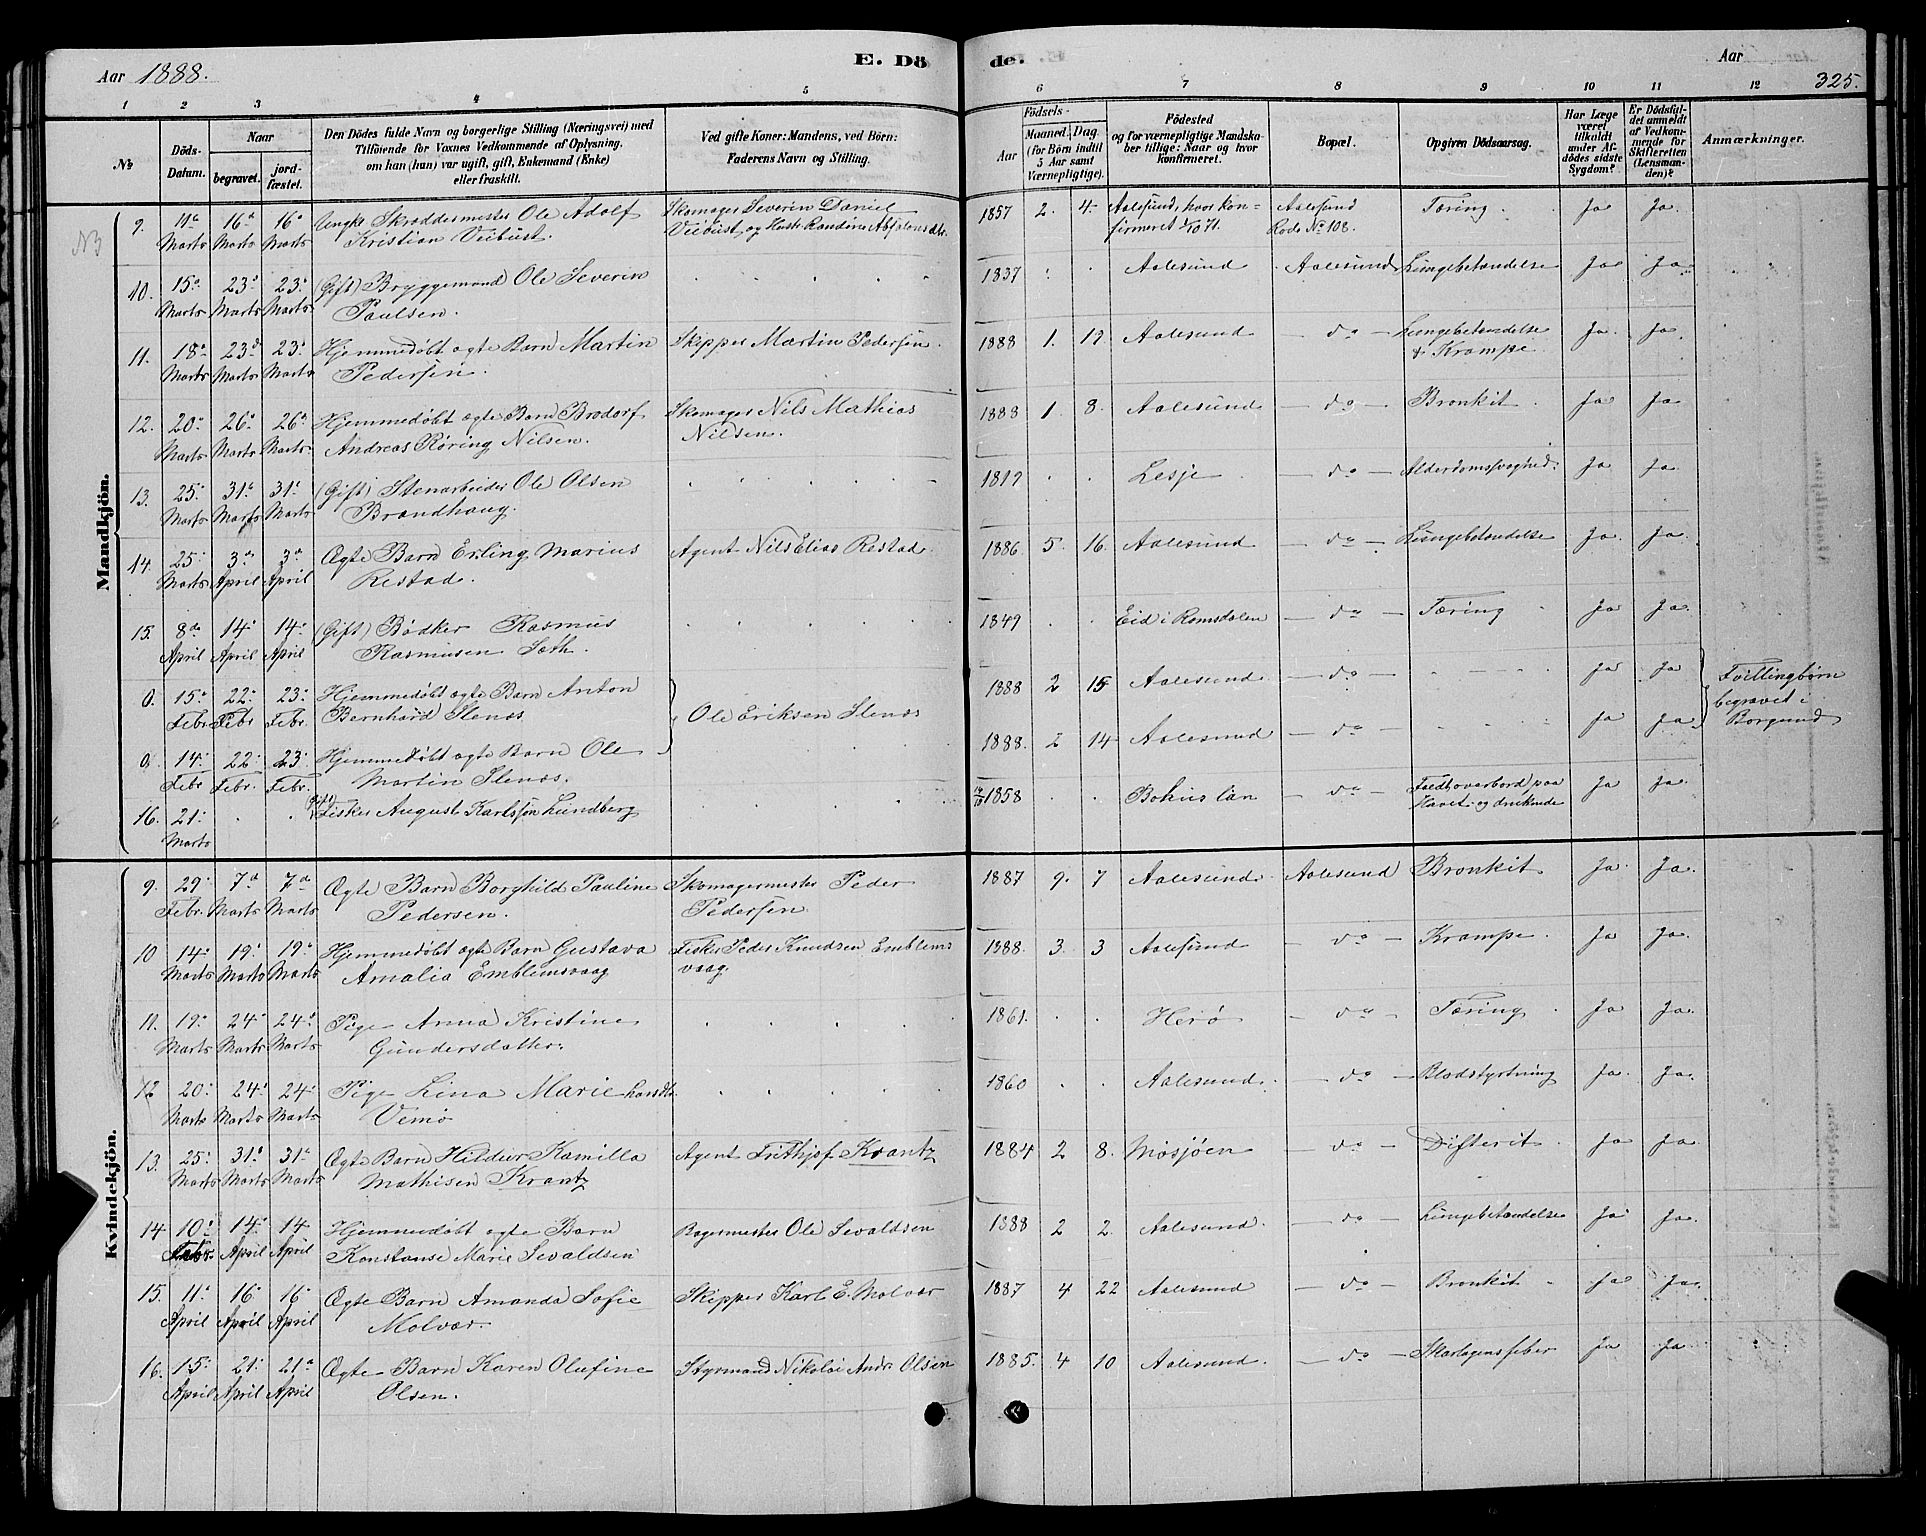 Aar 1888.
E. Dö
de.
Aar
325.
1 2 3 4 5 6 7 8 9 10 11 12
No
Döds-Datum.
Naar
begravet.
jord-fæstet.
Den Dödes fulde Navn og borgerlige Stilling (Næringsvei) med
Tilföiende for Voxnes Vedkommende af Oplysning,
om han (hun) var ugift, gift, Enkemand (Enke)
eller fraskilt.
Ved gifte Koner: Mandens, ved Börn:
Faderens Navn og Stilling.
Födsels-
Aar
Maaned. Dag
(for Börn indtil
5 Aar samt
Værnepligtige).
Födested
og for værnepligtige Mandska-
ber tillige: Naar og hvor
konfirmeret.
Bopæl.
Opgiven Dödsaarsag.
Har Læge
været
tilkaldt
under Af-
dödes sidste
Sygdom?
Er Dödsfal-
det anmeldt
af Vedkom-
mende for
Skifteretten
(Lensman-
den)?
Anmærkninger.
Mandkjön.
9. 11te Marts 16de Marts 16de Marts Ungk. Skræddermester Ole Adolf Kristian Viibust. Skomager Severin Daniel Viibust og Hustr. Randine Absalonsdtr. 1857 2. 4. Aalesund, hvor konfirmeret 1/10 71. Aalesund Rode No 108. Tæring. Ja Ja.
10. 15de Marts 23de Marts 23de Marts (Gift) Bryggemand Ole Severin Paulsen. 1837 Aalesund Aalesund Lungebetændelse Ja Ja
11. 18de Marts 23de Marts 23de Marts Hjemmedøbt ægte Barn Martin Pedersen. Skipper Martin Pedersen. 1888 1. 19. Aalesund - do - Lungebetændelse & Krampe. Ja. Ja
12. 20de Marts 26de Marts 26de Marts Hjemmedøbt ægte Barn Brodorf Andreas Røring Nilsen. Skomager Nils Mathias Nilsen. 1888 1. 8. Aalesund - do - Bronkit. Ja Ja
13. 25de Marts 31te Marts 31te Marts (Gift) Stenarbeider Ole Olsen Brandhaug. 1819 Lesje - do - Alderdomssvaghed. Ja Ja
14. 25de Marts 3de April 3de April Ægte Barn Erling Marius Restad. Agent Nils Elias Restad. 1886 5. 16. Aalesund - do - Lungebetændelse Ja Ja
15. 8de April 14de April 14de April (Gift) Bødker Rasmus Rasmusen Sæth. 1849 Eid i Romsdalen - do - Tæring Ja Ja
0. 15de Febr. 22. Febr 23. Febr. Hjemmedøbt ægte Barn Anton Bernhard Slenæs } Ole Eriksen Slenæs 1888 2 15 Aalesund - do - Ja Ja } Tvillingbørn begravet i Borgund
0. 14. Febr 22. Febr. 23. Febr. Hjemmedøbt ægte Barn Ole Martin Slenæs. 1888. 2 14 Aalesund - do - Ja Ja
16. 21. Marts (Gift) Fisker August Karlsson Lundberg 1858 Bohus län - do - Faldt overbord paa Havet og druknede Ja Ja
Kvindekjön.
9. 29. Febr. 7de Marts 7de Marts Ægte Barn Borghild Pauline Pedersen. Skomagermester Peder Pedersen 1887 9. 7 Aalesund. Aalesund Bronkit Ja Ja.
10 14de Marts 19. Marts 19de Marts Hjemmedøbt ægte Barn Gustava Amalia Emblemsvaag Fisker Peder Knudsen Emblemsvaag. 1888. 3. 3 Aalesund - do - Krampe. Ja Ja.
11. 19de Marts 24. Marts 24de Marts Pige Anna Kristine Gundersdatter. 1861. Herø - do - Tæring Ja Ja.
12 20. Marts 24de Marts 24. Marts Pige Lina Marie Hansdtr. Vemø 1860 Aalesund. - do - Blodstyrtning Ja. Ja.
13. 25. Marts 31te Marts 31te Marts Ægte Barn Hildur Kamilla Mathisen Krantz Agent Frithjof Krantz 1884 2 8. Mosjøen - do - Difterit. Ja Ja
14. 10de Febr. 14de April 14 April Hjemmedøbt ægte Barn Konstanse Marie Sevaldsen Bagermester Ole Sevaldsen 1888 2 2. Aalesund. - do - Lungebetændelse Ja Ja.
15. 11te April 16 April 16 April Ægte Barn Amanda Sofie Molvær. Skipper Karl E. Molvær 1887 4 22 Aalesund - do - Bronkit Ja Ja.
16. 15. April 21. April 21de April Ægte Barn Karen Olufine Olsen. Styrmand Nikolai Andr. Olsen 1885. 4 10 Aalesund. - do - Skarlagensfeber Ja Ja.